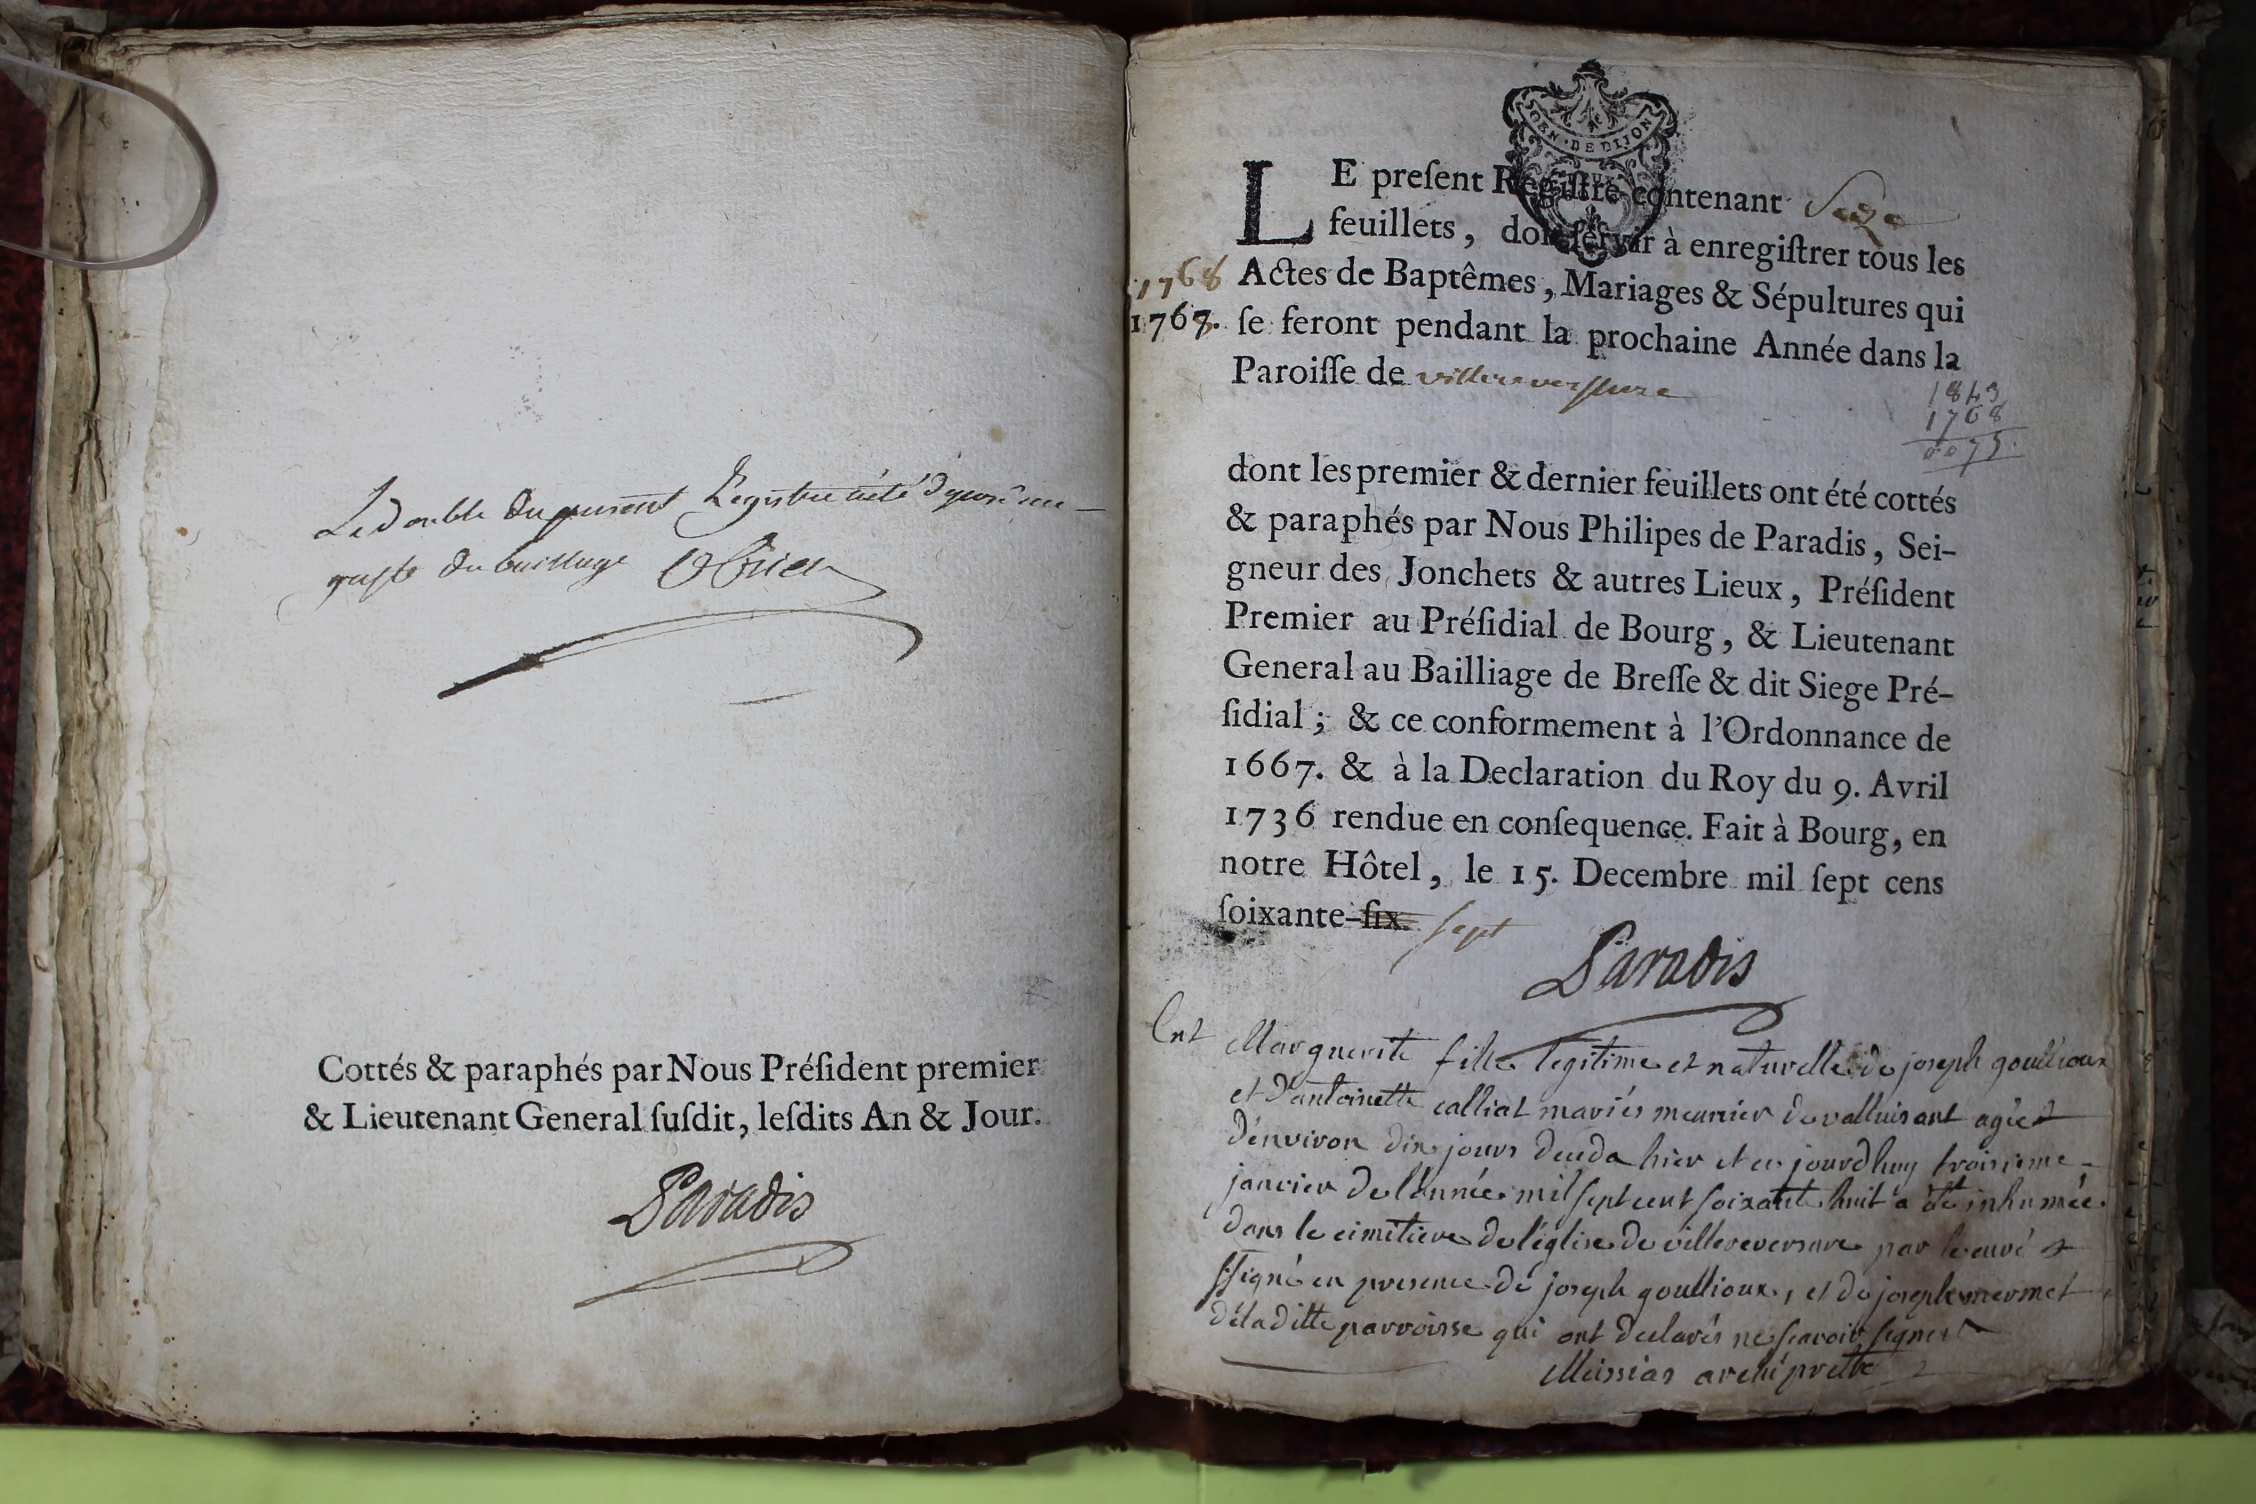 Le double du present Registre a été déposé au
greffe du bailliage
Cottés & paraphés par Nous Préſident premier
& Lieutenant General ſuſdit, leſdits An & Jour.
Paradis
GEN · DE DIJON
LE preſent Regiſtre contenant Seize
feuillets, doit ſervir à enregiſtrer tous les
1768
Actes de Baptêmes, Mariages & Sépultures qui
1767. ſe feront pendant la prochaine Année dans la
Paroiſſe de villereverssure
1843
1768
0075.
dont les premier & dernier feuillets ont été cottés
& paraphés par Nous Philipes de Paradis, Sei-
gneur des Jonchets & autres Lieux, Préſident
Premier au Préſidial de Bourg, & Lieutenant
General au Bailliage de Breſſe & dit Siege Pré-
ſidial; & ce conformement à l'Ordonnance de
1667. & à la Declaration du Roy du 9. Avril
1736 rendue en conſequence. Fait à Bourg, en
notre Hôtel, le 15. Decembre mil ſept cens
ſoixante-ſix. sept
Paradis
Ent Marguerite fille legitime et naturelle de joseph goullioux
et d'antoinette calliat mariés meunier de valluisant agée
d'environ dix jours deceda hier et ce jourdhuy troisieme
janvier de l'année mil sept cent soixante huit a été inhumée
dans le cimetiere de l'églize de villereversure par le curé
ssigné en presence de joseph goullioux, et de joseph mermet
de laditte parroisse qui ont declarés ne scavoir signer
Messias archiprettre